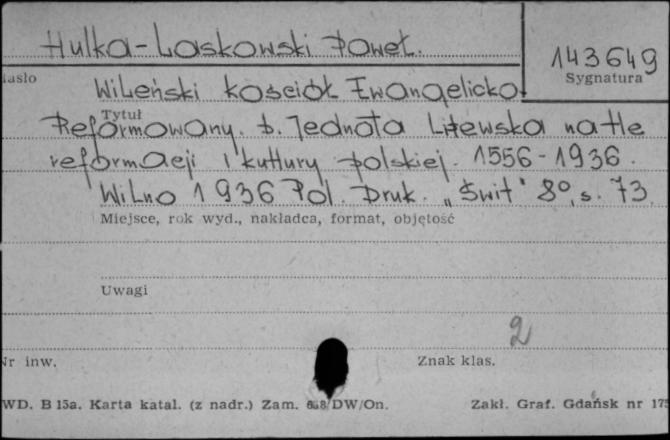 Hulka-Laskowski Paweł.
143649
Sygnatura
Wileński kościół Ewangelicko
Tytuł
Reformowany. b. Jednota Litewska na tle
reformacji i kultury polskiej. 1556-1936.
Wilno 1936 Pol. Druk. „Świt" 8°, s. 73
Miejsce, rok wyd., nakładca, format, objętość
Uwagi
2
Nr inw.
Znak klas.
WD. B 15a. Karta katal. (z nadr.) Zam. DW/On.
Zakł. Graf. Gdańsk nr